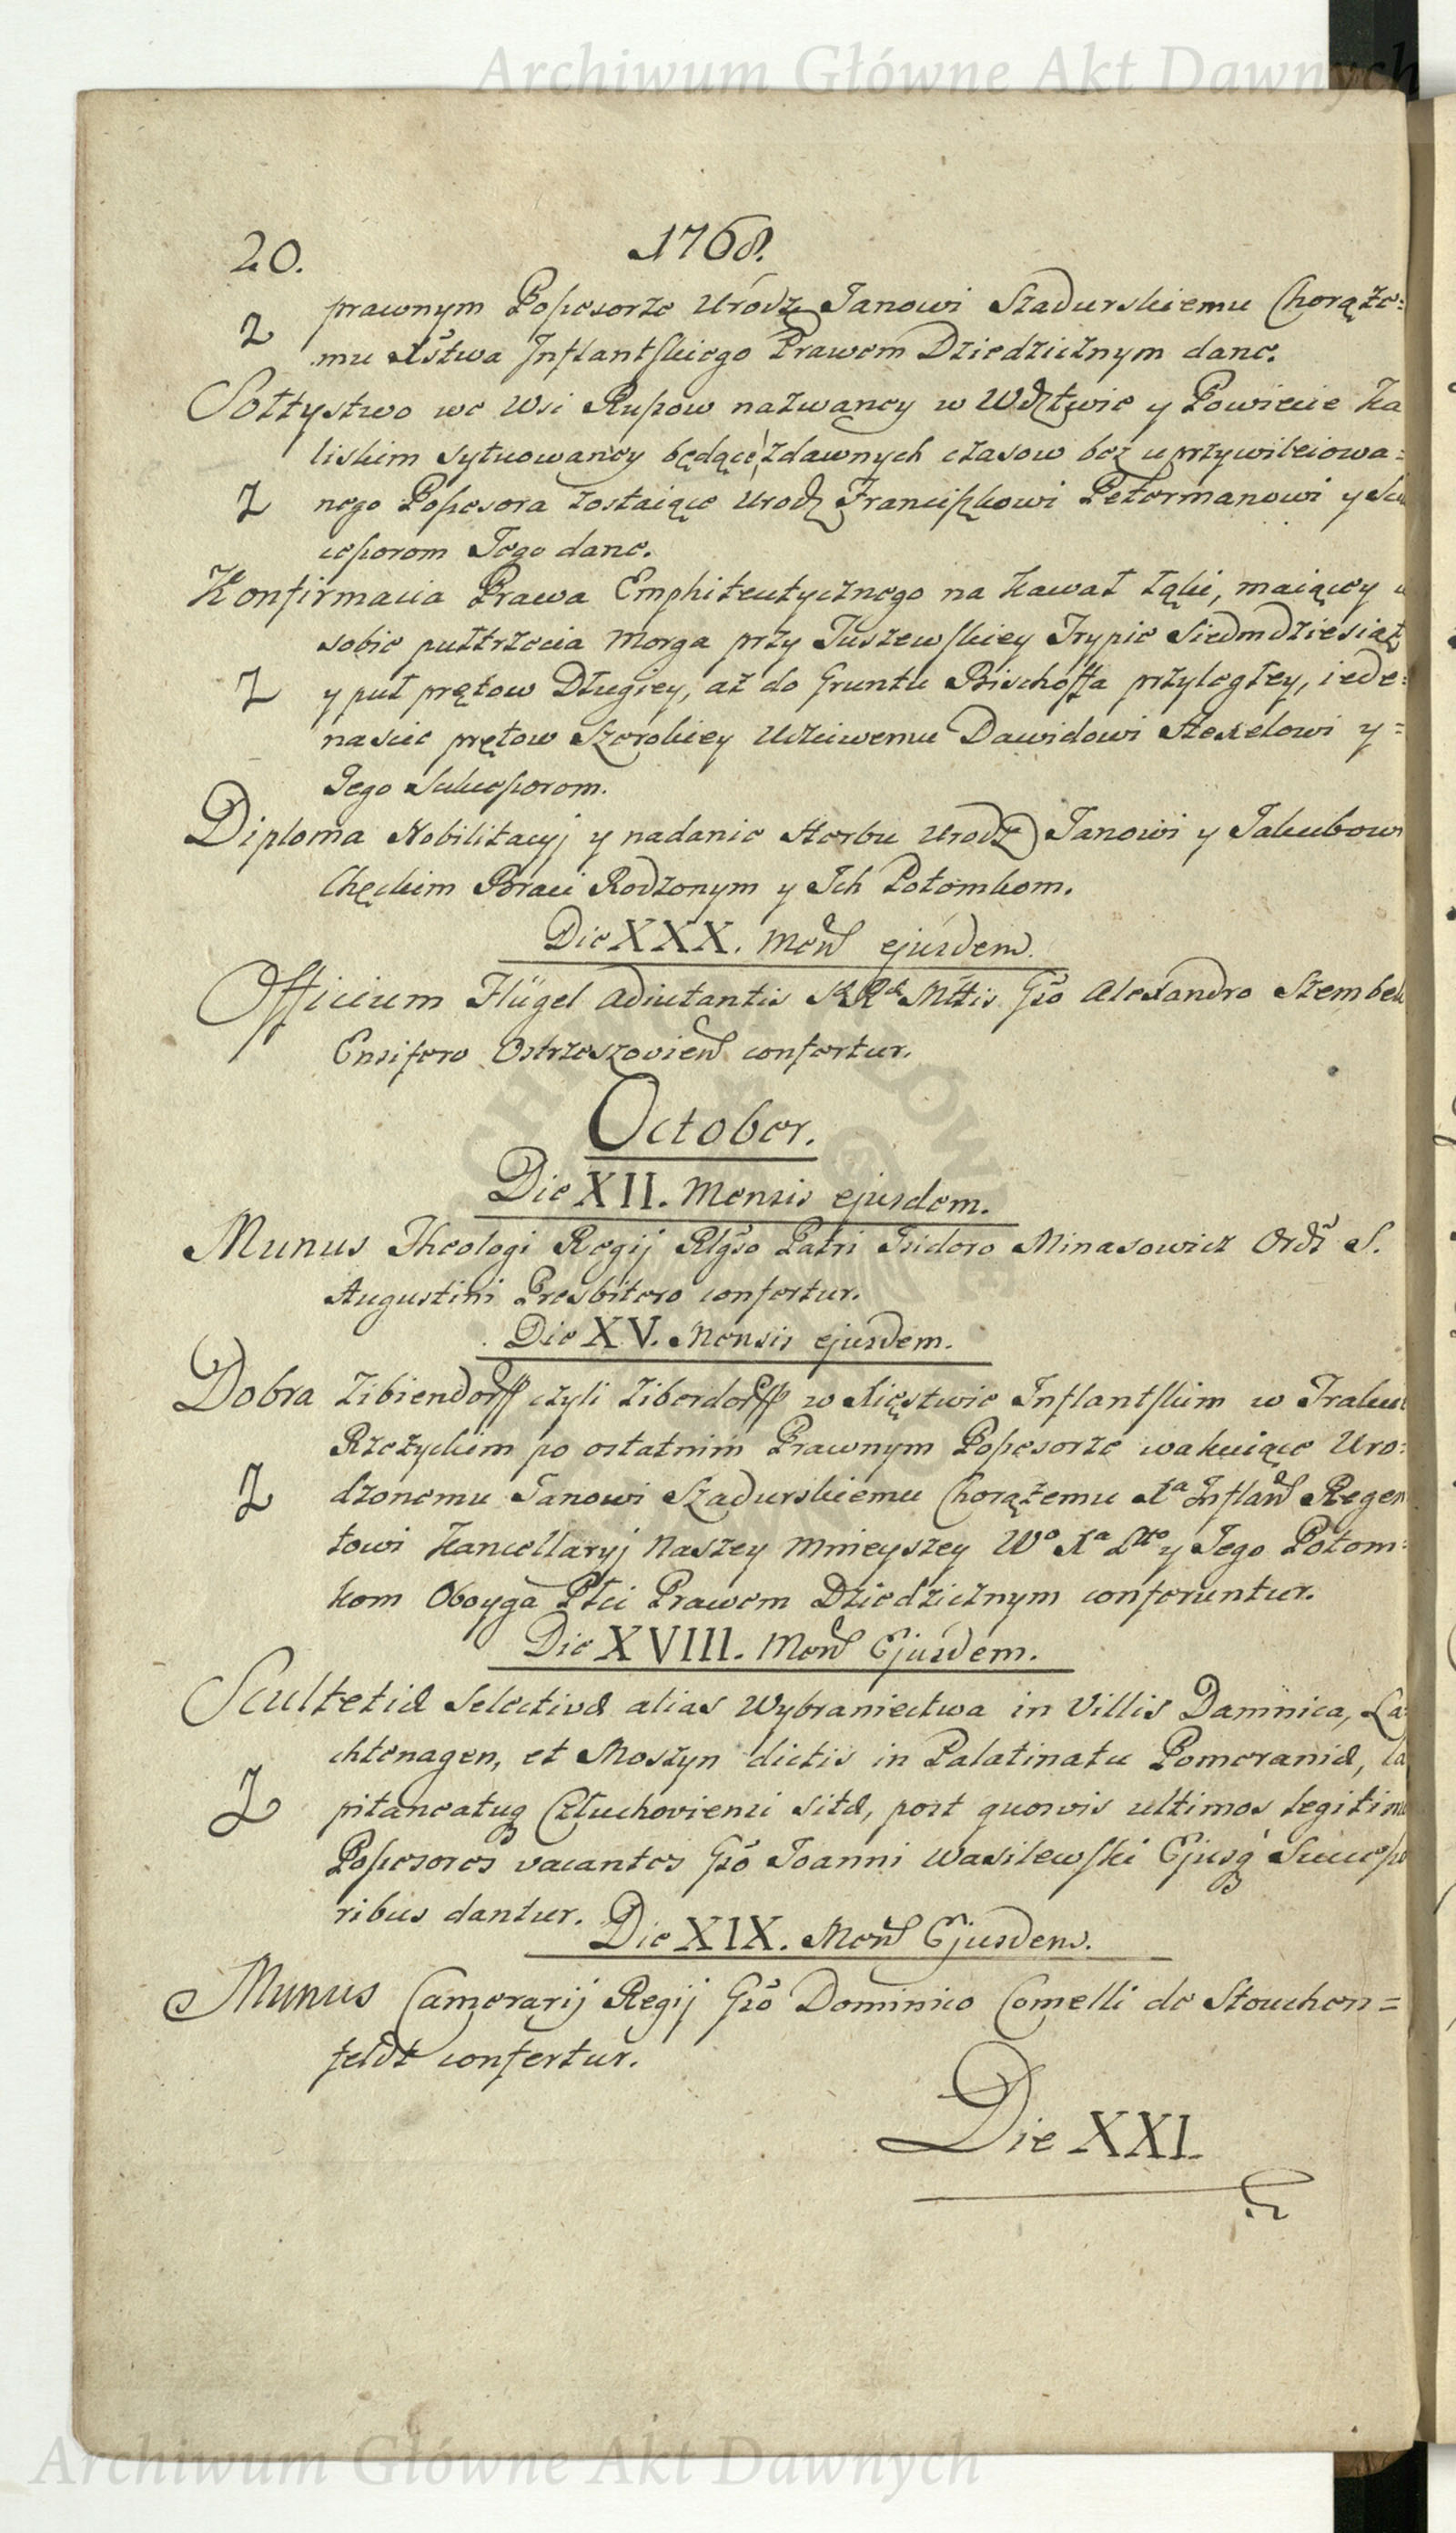 Archiwum Główne Akt Dawnych
20.
1768.
prawnym Possesorze Urodz Janowi Szadurskiemu Chorąże=
Z
mu Xstwa Inflantskiego Prawem Dziedzicznym dane.
Sołtystwo we Wsi Rupow nazwaney w Wdztwie y Powiecie Ka
liskim sytuowaney będące, zdawnych czasow bez uprzywileiowa=
Z nego Possesora zostaiące Urodz Franciszkowi Petermanowi y Su
cessorom Jego dane.
Konfirmacia Prawa Emphiteutycznego na Kawał Łąki, maiącey w
sobie pułtrzecia Morga przy Juszewskiey Trypie Siedmdziesiąt
Z y puł prętow Długiey, aż do Gruntu Bischoffa przyległey, iede=
nascie prętow Szerokiey Uczciwemu Dawidowi Hexelowi y=
Jego Sukcessorom.
Diploma Nobilitacyj y nadanie Herbu Urodz Janowi y Jakubowi
Chęckim Braci Rodzonym y Ich Potomkom.
Die XXX. Mens ejusdem.
Officium Flügel Adiutantis S R Mttis Gso Alexandro Szembek
Ensifero Ostrzeszovien confertur.
October.
Die XII. Mensis ejusdem.
Munus Theologi Regij Rlgso Patri Isidoro Minasowicz Ords S.
Augustini Presbitero confertur.
Die XV. Mensis ejusdem.
Dobra Zibiendorff czyli Ziberdorff w Xięstwie Inflantskim w Traku
Rzeżyckim po ostatnim Prawnym Possesorze wakuiące Uro=
Z
dzonemu Janowi Szadurskiemu Chorążemu Xa Inflan Regen
towi Kancellaryj Naszey Mnieyszey Wo Xa Ltto y Jego Potom=
kom Oboyga Płci Prawem Dziedzicznym conferuntur.
Die XVIII. Mens Ejusdem.
Scultetiæ Selectivæ alias Wybraniectwa in Villis Damnica, La
chtenagen, et Moszyn dictis in Palatinatu Pomeraniæ, Ca
Z
pitaneatuq Człuchoviensi sitæ, post quosvis ultimos legitim
Possesores vacantes Gso Joanni Wasilewski Ejusq Successo
ribus dantur.
Die XIX. Mens Ejusdem.
Munus Camerarij Regij Gso Dominico Comelli de Stouchen=
feldt confertur.
Die XXI.
Archiwum Główne Akt Dawnych